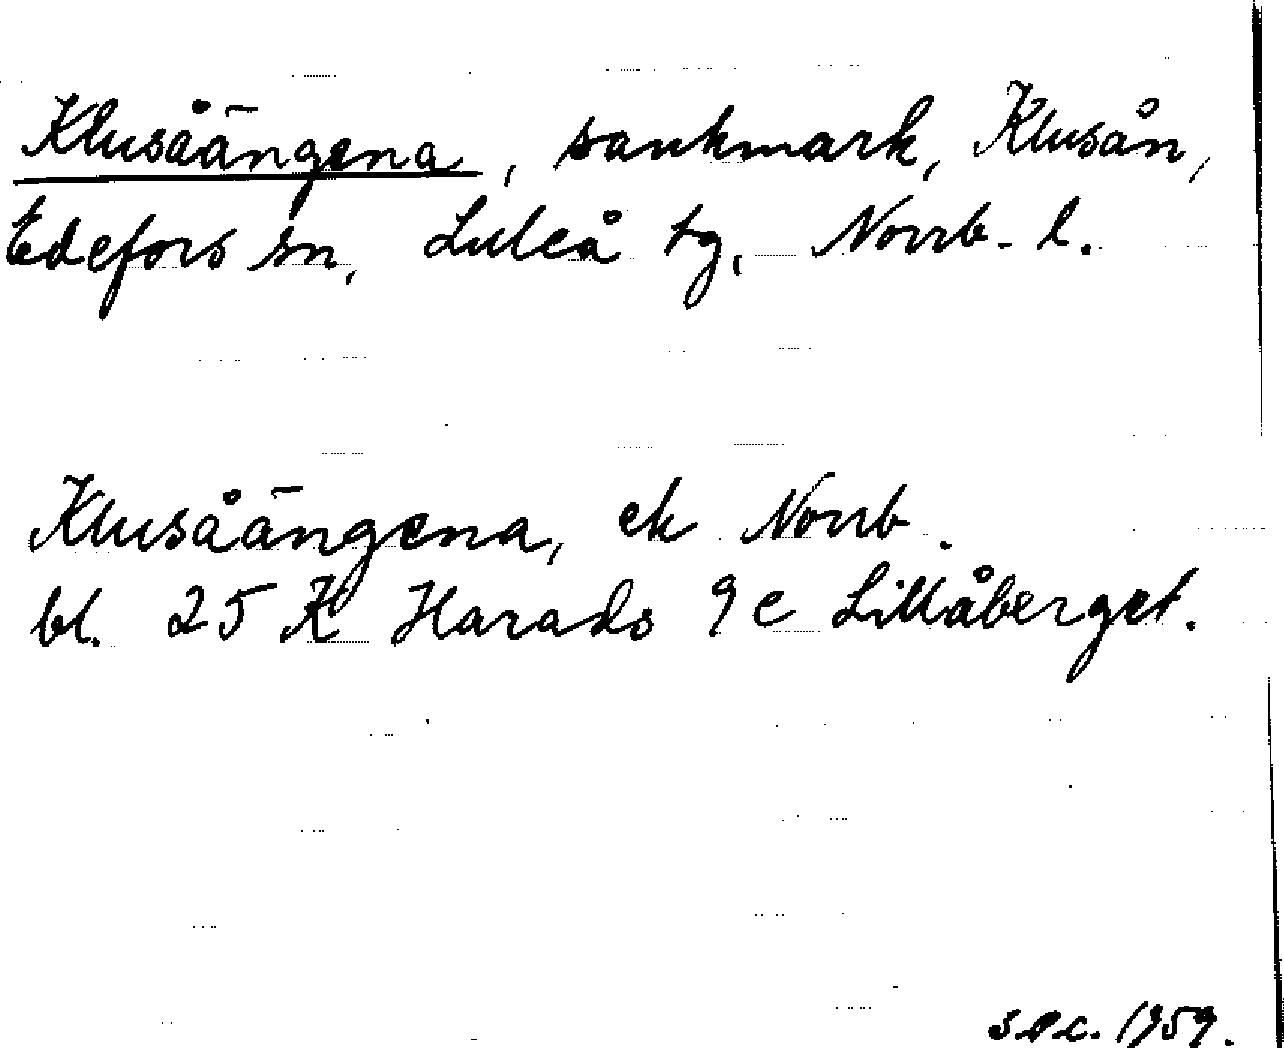 Klusåängena, sankmark, Klusån,
Edefors sn, Luleå tg, Norrb. l.
Klusåängena, ek Norrb.
bl. 25 K Harads 9 c Lillåberget.
1959.